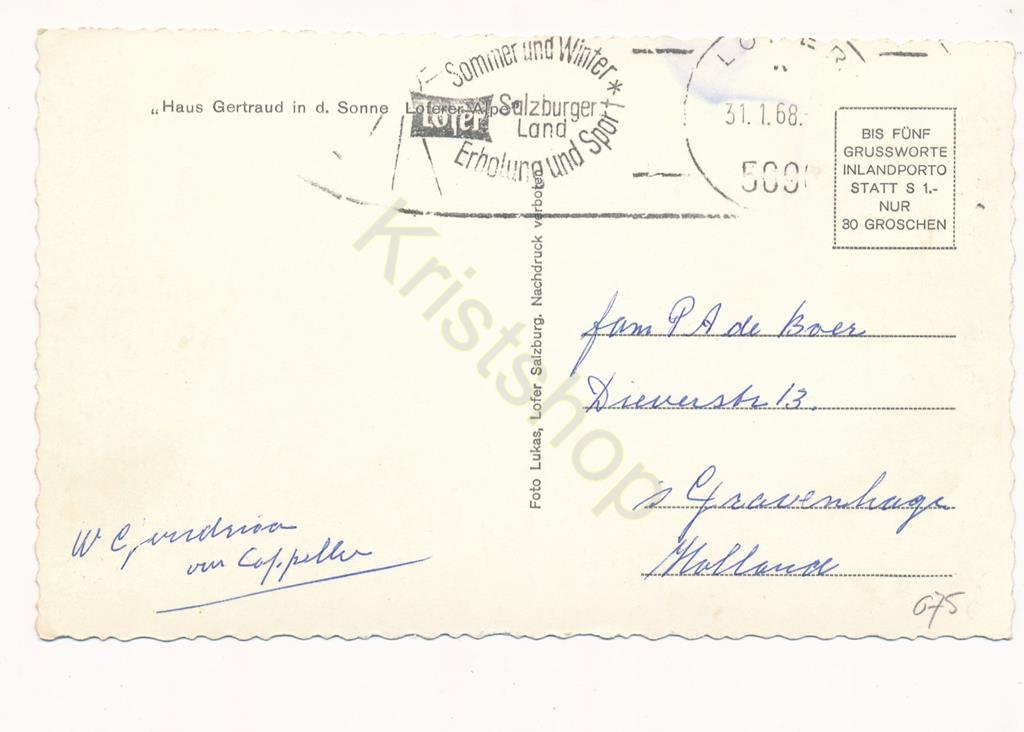 Sommer und Winter *
LOFER
„Haus Gertraud in d. Sonne Loferer Alpen
Lofer
Salzburger
Land
Erholung und Sport
31.1.68.-
BIS FÜNF
GRUSSWORTE
INLANDPORTO
STATT S 1.-
NUR
30 GROSCHEN
Foto Lukas, Lofer Salzburg. Nachdruck verboten
Kristshop
fam P A de Boer
Dieverstr 13.
s Gravenhage
Holland
van Cappellen
675